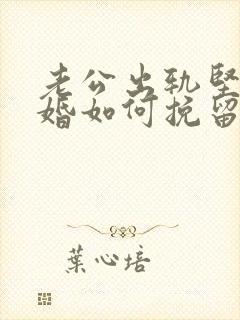 老公出轨坚
婚如何挽留
葉心培